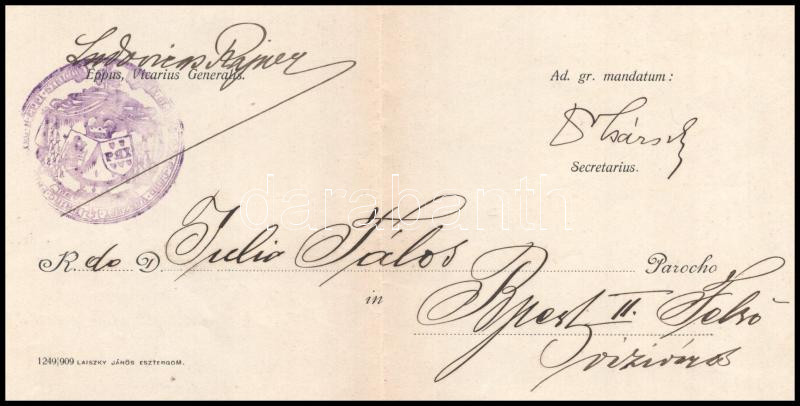 Ludovicus Rajner
Eppus, Vicarius Generalis.
Ad. gr. mandatum:
Secretarius.
R. do D Julio Tálos Parocho
in Bpest II. Felső
víziváros
darabanth
1249|909 LAISZKY JÁNOS ESZTERGOM.